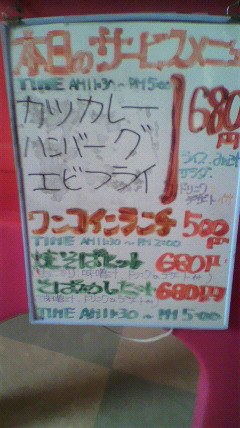 本日のサービスメニュー
TIME AM11:30 ~ PM5:00
カツカレー
ハンバーグ
エビフライ
680円
ライス、みそ汁
サラダ
ドリンク
デザート付
ワンコインランチ 500円
TIME AM11:30 ~ PM2:00
焼そばセット 680円
そばめしセット 680円
TIME AM11:30 ~ PM5:00